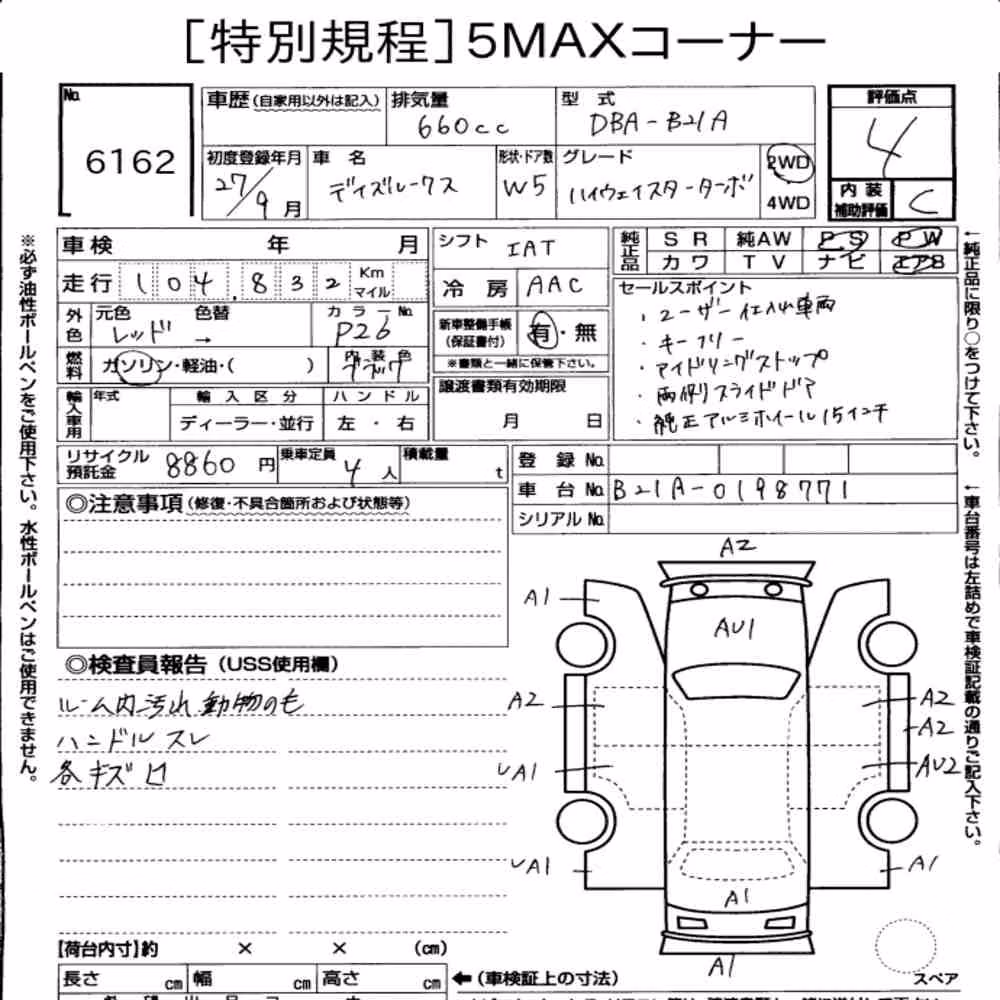 [特別規程]5MAXコーナー
No.
6162
車歴(自家用以外は記入)
排気量
660cc
型 式
DBA-B21A
評価点
4
初度登録年月
27/9月
車 名
デイズルークス
形状・ドア数
W5
グレード
ハイウェイスターターボ
2WD
4WD
内装補助評価
C
車検 年 月
シフト
IAT
純正品
SR 純AW PS PW
カワ TV ナビ エアB
走行 104,832 Km マイル
冷房 AAC
セールスポイント
・ユーザー仕入れ車両
・キーフリー
・アイドリングストップ
・両側スライドドア
・純正アルミホイール15インチ
外色
元色 レッド
色替 →
カラーNo.
P26
新車整備手帳(保証書付)
有・無
※書類と一緒に保管下さい。
燃料
ガソリン・軽油・( )
内装色
ブラック
譲渡書類有効期限
月 日
輸入車用
年式
輸入区分
ディーラー・並行
ハンドル
左・右
リサイクル預託金 8860円
乗車定員 4人
積載量 t
登録No.
車台No. B21A-0198771
シリアルNo.
◎注意事項(修復・不具合箇所および状態等)
◎検査員報告(USS使用欄)
ルーム内汚れ 動物のも
ハンドルスレ
各キズ凹
A2
A1
AU1
A2
A2
A2
AU2
A1
A1
A1
A1
A1
スペア
【荷台内寸】約 × × (cm)
長さ cm 幅 cm 高さ cm
←(車検証上の寸法)
※必ず油性ボールペンをご使用下さい。水性ボールペンはご使用できません。
←純正品に限り○をつけて下さい。
←車台番号は左詰めで車検証記載の通りご記入下さい。